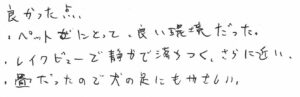 良かった点.
・ペットにとって、良い環境だった。
・レイクビューで静かで落ちつく、さらに近い.
・畳だったので犬の足にもやさしい。